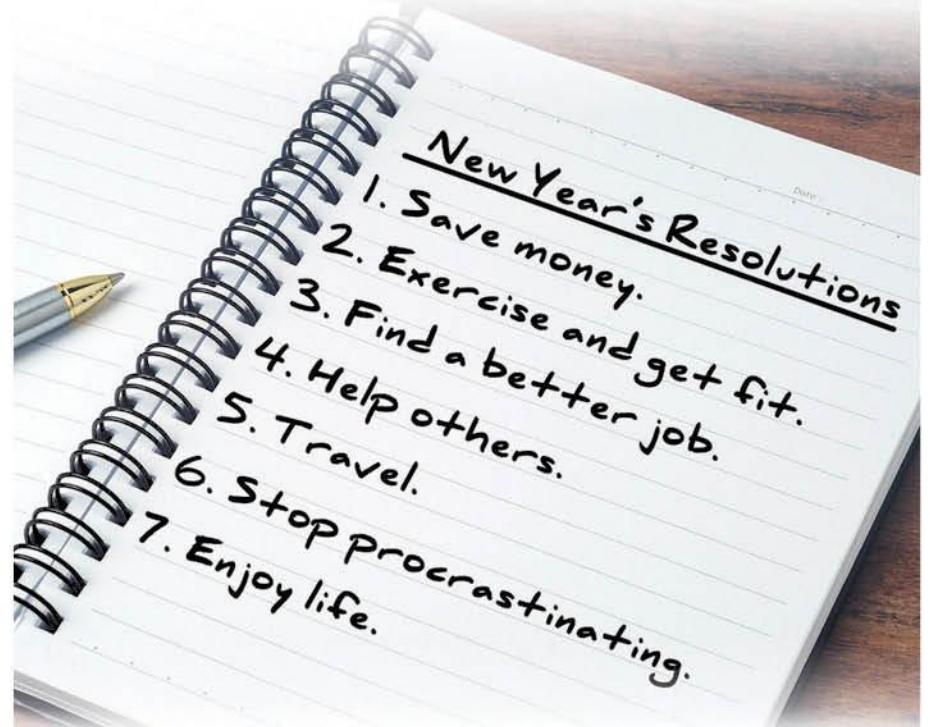 Date
New Year's Resolutions
1. Save money.
2. Exercise and get fit.
3. Find a better job.
4. Help others.
5. Travel.
6. Stop procrastinating.
7. Enjoy life.